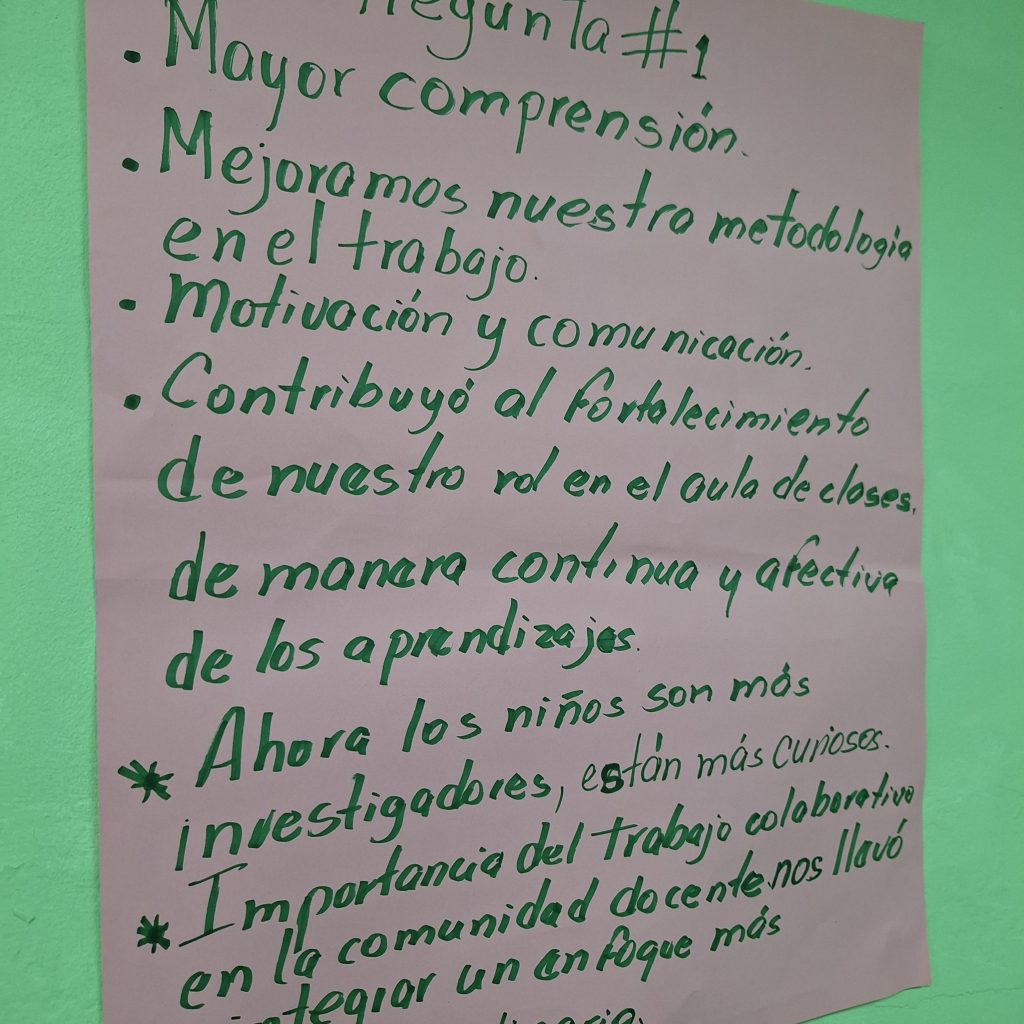 Pregunta #1
• Mayor comprensión.
• Mejoramos nuestra metodologia
en el trabajo.
• Motivación y comunicación.
• Contribuyó al fortalecimiento
de nuestro rol en el aula de clases.
de manera continua y afectiva
de los aprendizajes.
* Ahora los niños son más
investigadores, están más curiosos.
* Importancia del trabajo colaborativo
en la comunidad docente.nos llevó
integrar un enfoque más